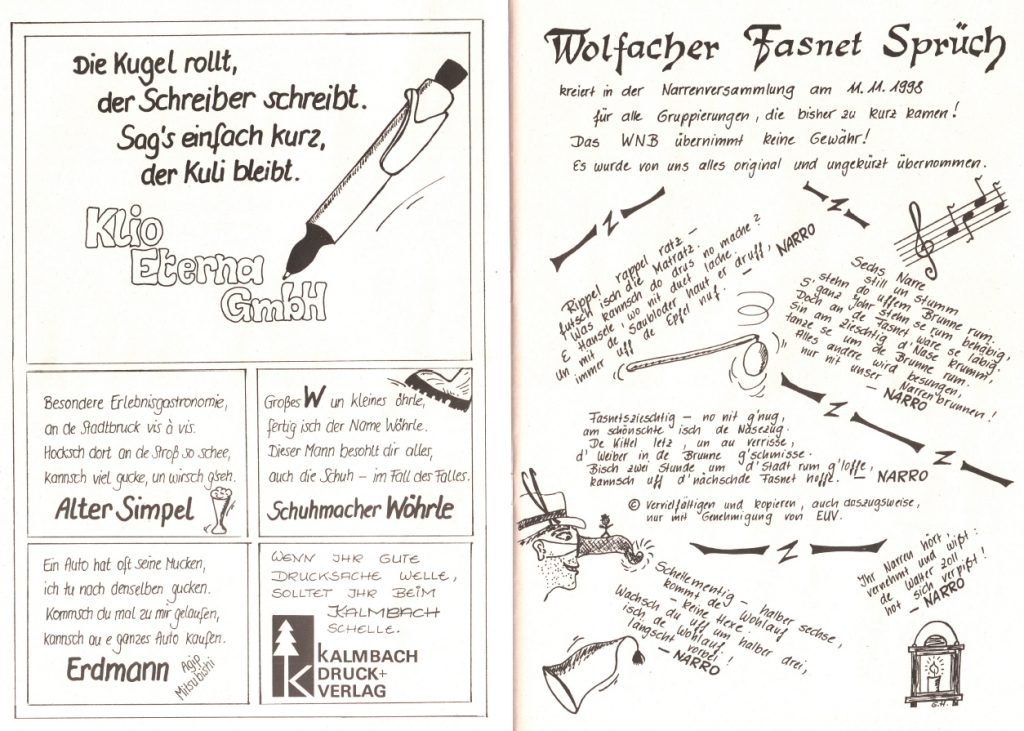 Die Kugel rollt,
der Schreiber schreibt.
Sag's einfach kurz,
der Kuli bleibt.
Klio
Eterna
GmbH
Besondere Erlebnisgastronomie,
an de Stadtbruck vis à vis.
Hocksch dort an de Stroß so schee,
kannsch viel gucke, un wirsch g'seh.
Alter Simpel
Großes W un kleines öhrle,
fertig isch der Name Wöhrle.
Dieser Mann besohlt dir alles,
auch die Schuh – im Fall des Falles.
Schuhmacher Wöhrle
Ein Auto hat oft seine Mucken,
ich tu nach denselben gucken.
Kommsch du mal zu mir gelaufen,
kannsch au e ganzes Auto kaufen.
Erdmann Agip
Mitsubishi
WENN IHR GUTE
DRUCKSACHE WELLE,
SOLLTET IHR BEIM
KALMBACH
SCHELLE.
KALMBACH
DRUCK+
VERLAG
Wolfacher Fasnet Sprüch
kreiert in der Narrenversammlung am 11.11.1998
für alle Gruppierungen, die bisher zu kurz kamen!
Das WNB übernimmt keine Gewähr!
Es wurde von uns alles original und ungekürzt übernommen.
Rippel rappel ratz –
futsch isch die Matratz.
Was kannsch do drus no mache?
E Hansele, wo nit duet lache
un mit de Saubloder haut er druff,
immer uff de Epfel nuf. – NARRO
Sechs Narre
still un stumm
stehn do uffem Brunne rum.
S'ganz Johr stehn se rum behäbig,
Doch an de Fasnet, ware se läbig.
Sin am zieschtig d'Nase krummt,
tanze se um de Brunne rum.
Alles andere wird besungen,
nur nit unser Narrenbrunnen!
– NARRO
Fasnetszieschtig – no nit g'nug,
am schönschte isch de Nasezug.
De Kittel letz, un au verrisse,
d'Weiber in de Brunne g'schmisse.
Bisch zwei Stunde um d'Stadt rum g'loffe,
kannsch uff d'nächschde Fasnet hoffe. – NARRO
© Vervielfältigen und kopieren, auch auszugsweise,
nur mit Genehmigung von EUV.
Schellementig – halber sechse,
kommt de Wohlauf
– keine Hexe.
Wachsch du uff um halber drei,
isch de Wohlauf
längscht vorbei!
– NARRO
Ihr Narren hört,
vernehmt und wißt:
de Walter Zoll
hot sich verpißt!
– NARRO
G.H.